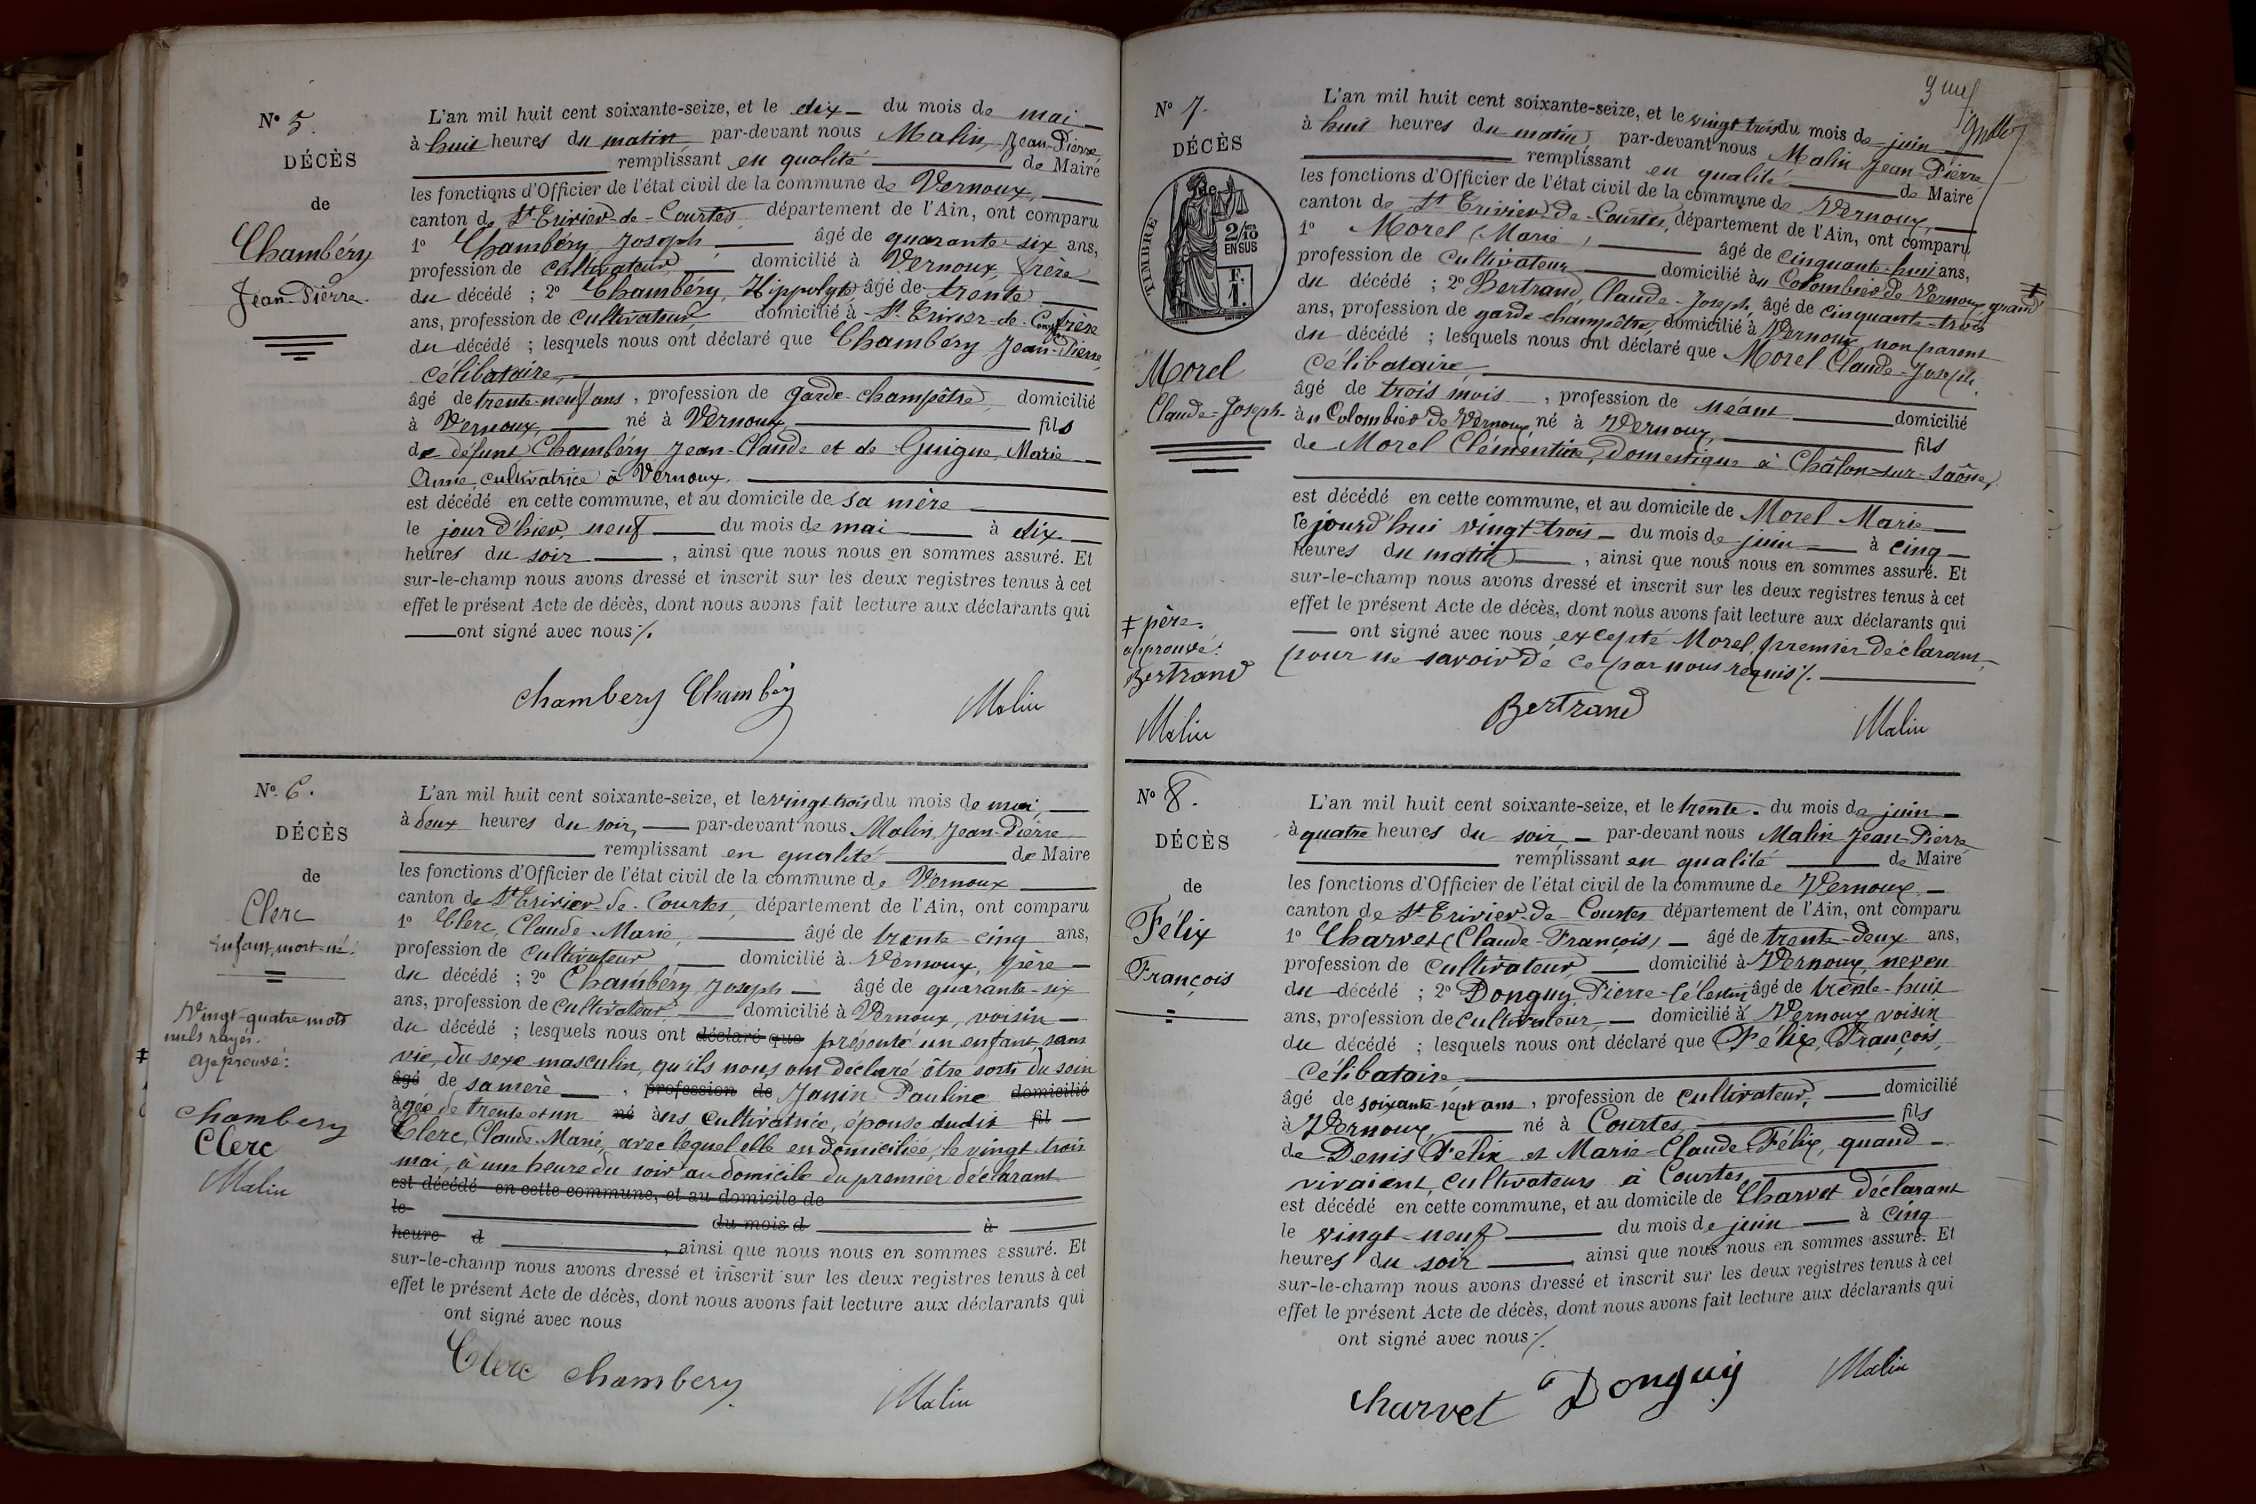 N° 5.
DÉCÈS
de
Chambéry
Jean-Pierre.
L'an mil huit cent soixante-seize, et le dix du mois de mai
à huit heures du matin, par-devant nous Malin, Jean-Pierre
remplissant en qualité de Maire
les fonctions d'Officier de l'état civil de la commune de Vernoux,
canton de St Trivier-de-Courtes, département de l'Ain, ont comparu
1° Chambéry, Joseph, âgé de quarante-six ans,
profession de cultivateur, domicilié à Vernoux, frère
du décédé ; 2° Chambéry, Hippolyte âgé de trente
ans, profession de cultivateur domicilié à St Trivier-de-Courtes frère
du décédé ; lesquels nous ont déclaré que Chambéry Jean-Pierre,
célibataire,
âgé de trente-neuf ans, profession de garde-champêtre, domicilié
à Vernoux, né à Vernoux, fils
de défunt Chambéry Jean-Claude et de Guigue, Marie
Anne, cultivatrice à Vernoux.
est décédé en cette commune, et au domicile de sa mère
le jour d'hier, neuf du mois de mai à dix
heures du soir, ainsi que nous nous en sommes assuré. Et
sur-le-champ nous avons dressé et inscrit sur les deux registres tenus à cet
effet le présent Acte de décès, dont nous avons fait lecture aux déclarants qui
ont signé avec nous ./.
chambery Chambéry Malin
N° 6.
DÉCÈS
de
Clerc
Enfant, mort-né.
Vingt-quatre mots
nuls rayés.
Approuvé :
chambery
Clerc
Malin
L'an mil huit cent soixante-seize, et le vingt-trois du mois de mai,
à deux heures du soir, par-devant nous Malin, Jean-Pierre
remplissant en qualité de Maire
les fonctions d'Officier de l'état civil de la commune de Vernoux
canton de St Trivier-de-Courtes, département de l'Ain, ont comparu
1° Clerc, Claude-Marie, âgé de trente-cinq ans,
profession de cultivateur, domicilié à Vernoux, père
du décédé ; 2° Chambéry, Joseph âgé de quarante-six
ans, profession de cultivateur, domicilié à Vernoux, voisin
du décédé ; lesquels nous ont déclaré que présenté un enfant, sans
vie, du sexe masculin, qu'ils nous ont déclaré être sorti du sein
âgé de sa mère, profession de Janin Pauline domicilié
âgée de trente et un né ans cultivatrice, épouse dudit fil
Clerc, Claude-Marie, avec lequel elle est domiciliée, le vingt-trois
mai, à une heure du soir au domicile du premier déclarant
est décédé en cette commune, et au domicile de
le du mois d à
heure d, ainsi que nous nous en sommes assuré. Et
sur-le-champ nous avons dressé et inscrit sur les deux registres tenus à cet
effet le présent Acte de décès, dont nous avons fait lecture aux déclarants qui
ont signé avec nous
Clerc chambery Malin
N° 7.
DÉCÈS
de
TIMBRE
2/10
EN SUS
F.
1.
Morel
Claude-Joseph
‡ père.
approuvé :
Bertrand
Malin
L'an mil huit cent soixante-seize, et le vingt-trois du mois de juin
à huit heures du matin, par-devant nous Malin Jean-Pierre
remplissant en qualité de Maire
les fonctions d'Officier de l'état civil de la commune de Vernoux,
canton de St Trivier-de-Courtes, département de l'Ain, ont comparu
1° Morel (Marie), âgé de cinquante-huit ans,
profession de cultivateur domicilié au Colombier de Vernoux, grand ‡
du décédé ; 2° Bertrand, Claude-Joseph, âgé de cinquante-trois
ans, profession de garde-champêtre, domicilié à Vernoux, non parent
du décédé ; lesquels nous ont déclaré que Morel Claude-Joseph,
célibataire,
âgé de trois mois, profession de néant domicilié
au Colombier de Vernoux, né à Vernoux, fils
de Morel Clémentine, domestique à Châlon-sur-Saône,
est décédé en cette commune, et au domicile de Morel Marie
le jourd'hui vingt-trois du mois de juin à cinq
heures du matin, ainsi que nous nous en sommes assuré. Et
sur-le-champ nous avons dressé et inscrit sur les deux registres tenus à cet
effet le présent Acte de décès, dont nous avons fait lecture aux déclarants qui
ont signé avec nous excepté Morel, premier déclarant,
pour ne savoir de ce par nous requis ./.
Bertrand Malin
N° 8.
DÉCÈS
de
Félix
François
L'an mil huit cent soixante-seize, et le trente du mois de juin
à quatre heures du soir, par-devant nous Malin Jean-Pierre
remplissant en qualité de Maire
les fonctions d'Officier de l'état civil de la commune de Vernoux,
canton de St Trivier-de-Courtes département de l'Ain, ont comparu
1° Charvet (Claude-François) âgé de trente-deux ans,
profession de cultivateur, domicilié à Vernoux, neveu
du décédé ; 2° Donguy, Pierre-Célestin âgé de trente-huit
ans, profession de cultivateur, domicilié à Vernoux voisin
du décédé ; lesquels nous ont déclaré que Félix, François,
célibataire,
âgé de soixante-sept ans, profession de cultivateur, domicilié
à Vernoux, né à Courtes, fils
de Denis Félix et Marie-Claude Félix, quand
vivaient, cultivateurs à Courtes
est décédé en cette commune, et au domicile de Charvet déclarant
le vingt-neuf du mois de juin à cinq
heures du soir, ainsi que nous nous en sommes assuré. Et
sur-le-champ nous avons dressé et inscrit sur les deux registres tenus à cet
effet le présent Acte de décès, dont nous avons fait lecture aux déclarants qui
ont signé avec nous ./.
charvet Donguy Malin